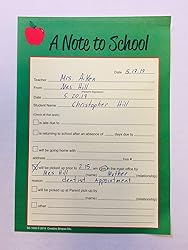 A Note to School
Date 5.17.19
Teacher Mrs. Aiken
From Mrs Hill
Date 5.20.19
Student Name Christopher Hill
(Check all that apply)
is late due to
is returning to school after an absence of days due to
will be going home with
address bus #
will be picked up at 2:15 am/pm in the main office by
Mrs Hill (name) Mother (relationship)
Reason dentist appointment
will be picked up at Parent pick-up by
(name) (relationship)
Other